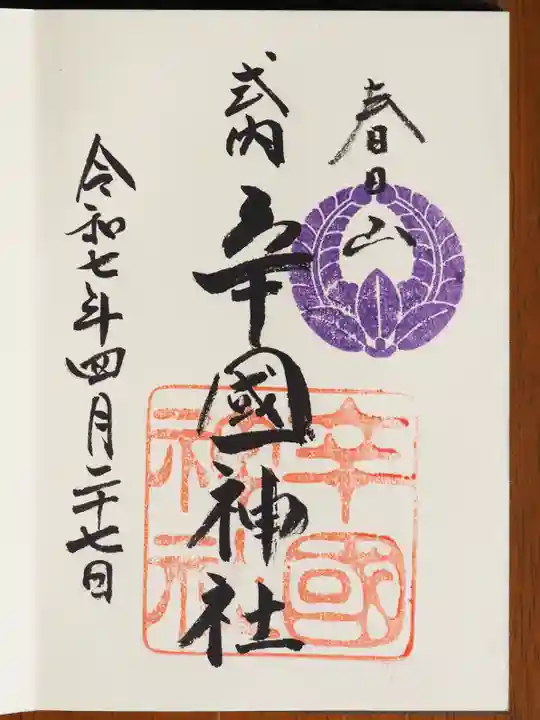 春日山
式内
辛國神社
辛國神社
令和七年四月二十七日